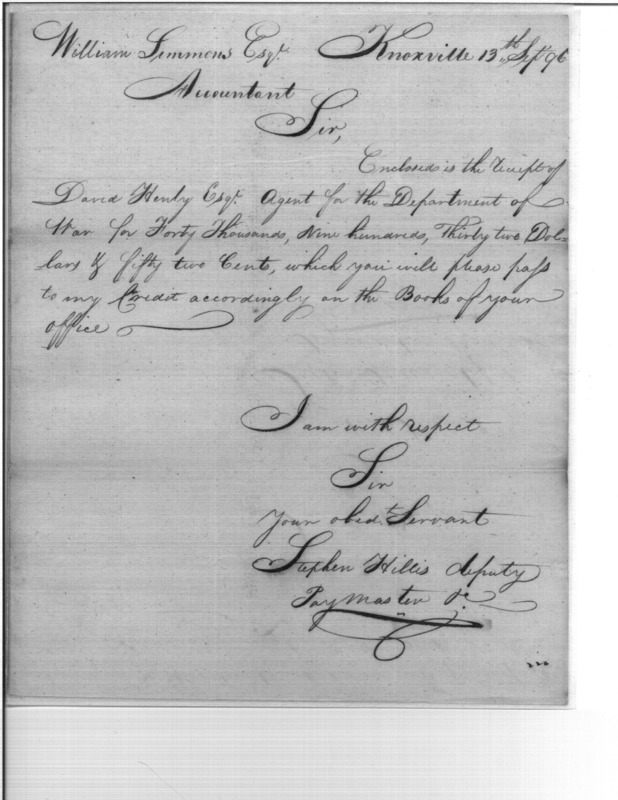 William Simmons Esqr. Knoxville 13th Sept 96
Accountant
Sir,
Enclosed is the receipt of
David Henly Esqr. Agent for the Department of
War for Forty Thousands, Nine hundreds, Thirty two Dol-
lars & fifty two Cents, which you will please pass
to my Credit accordingly on the Books of your
office
I am with respect
Sir
Your obedt. Servant
Stephen Hillis deputy
Paymaster &c